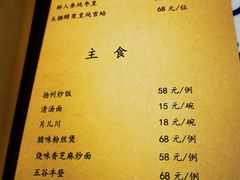 鲜人参炖牛皇 68 元/位
木糖醇果皇炖雪蛤
主 食
扬州炒饭 58 元/例
清汤面 15 元/碗
片儿川 18 元/碗
腊味粉丝煲 68 元/例
烧味香芝麻炒面 58 元/例
五谷丰登 68 元/例